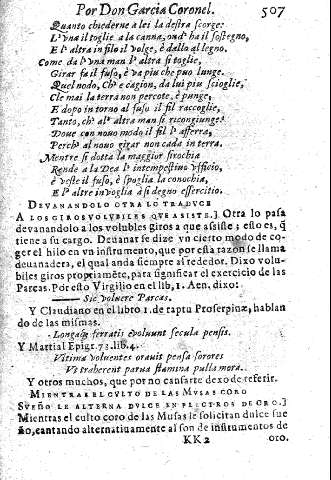 Por Don Garcia Coronel. 507
Quanto chiederne a lei la destra scorge:
L'vna il toglie a la canna, ond' ha il sostegno,
E l' altra in filo il volge, è dallo al legno.
Come da l' vna man l' altra si toglie,
Girar fa il fuso, è va piu che puo lunge.
Quel nodo, ch' e cagion, da lui piu scioglie,
Che mai la terra non percote, è punge,
E dopo in torno al fuso il fil raccoglie,
Tanto, ch' al' altra man si ricongiunge:
Doue con nouo modo il fil l' afferra,
Perch' al nouo girar non cada in terra.
Mentre si dotta la maggior sirochia
Rende a la Dea l' intempestiuo vfficio,
è veste il fuso, è spoglia la conochia,
E l' altre inuoglia à si degno essercitio.
DEVANANDOLO OTRA LO TRADUCE
A LOS GIROS VOLUBILES QUE ASISTE.] Otra lo pasa
devanandolo a los volubles giros a que assiste; esto es, q̃
tiene a su cargo. Deuanar se dize vn cierto modo de co-
ger el hilo en vn instrumento, que por esta razon se llama
deuanadera, el qual anda siempre al rededor. Dixo volu-
biles giros propriamẽte, para significar el exercicio de las
Parcas. Por esto Virgilio en el lib, 1. Aen, dixo:
—— Sic voluere Parcas.
Y Claudiano en el libro 1. de raptu Proserpinæ, hablan
do de las mismas.
Longaq; ferratis evoluunt secula pensis.
Y Martial Epigr. 73. lib. 4.
Vltima voluentes orauit pensa sorores
Vt traherent parua stamina pulla mora.
Y otros muchos, que por no cansarte dexo de referir.
MIENTRAS EL CULTO DE LAS MUSAS CORO
SUEÑO LE ALTERNA DULCE EN PLECTROS DE ORO.]
Mientras el culto coro de las Musas le solicitan dulce sue
ño, cantando alternatiuamente al son de instrumentos de
KK2 oro.